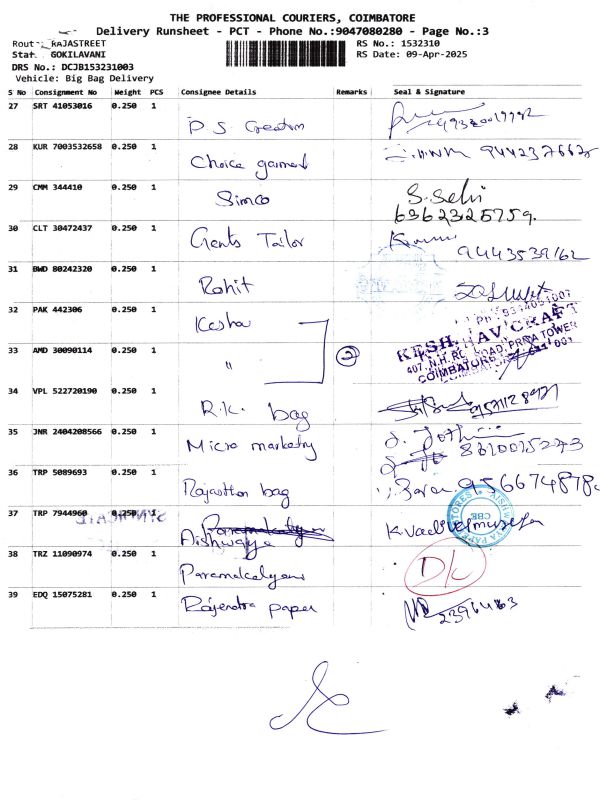 THE PROFESSIONAL COURIERS, COIMBATORE
Delivery Runsheet - PCT - Phone No.:9047080280 - Page No.:3
RAJASTREET RS No.: 1532310
GOKILAVANI RS Date: 09-Apr-2025
DRS No.: DCJB153231003
Vehicle: Big Bag Delivery
S No Consignment No Weight PCS Consignee Details Remarks Seal & Signature
27 SRT 41053016 0.250 1
P.S. Creation
28 KUR 7003532658 0.250 1
Choice garment
29 CMM 344410 0.250 1
Simco S. Selvi
6362325759.
30 CLT 30472437 0.250 1
Gents Tailor
9443539162
31 BWD 80242320 0.250 1
Rohit
32 PAK 442306 0.250 1
Kesha
KESHHAV CRAFT
33 AMD 30090114 0.250 1
" 2
407, N.H. ROAD, PRIYA TOWER
COIMBATORE
34 VPL 522720190 0.250 1
R.K. bag
35 JNR 2404208566 0.250 1
Micro marketing
36 TRP 5089693 0.250 1
Rajasthan bag 9566748780
37 TRP 7944960 0.250 1
Aishwarya K. Vadivelmurugan
AISHWARYA PAPER STORES
CBE
38 TRZ 11090974 0.250 1
Paramakalyani D/C
39 EDQ 15075281 0.250 1
Rajendra paper 2396463